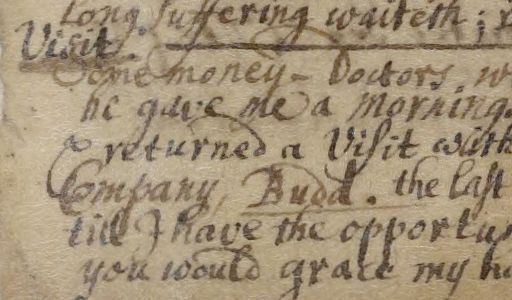 Long Suffering waiteth;
Visit.
Some money - Doctors
he gave me a morning
& returned a Visit with
Company, Budd. the last
till I have the opportun
you would grace my